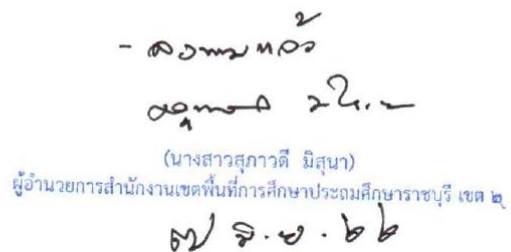 - ลงนามแล้ว
(นางสาวสุภาวดี มิสุนา)
ผู้อำนวยการสำนักงานเขตพื้นที่การศึกษาประถมศึกษาราชบุรี เขต ๒
๗ มิ.ย. ๖๖